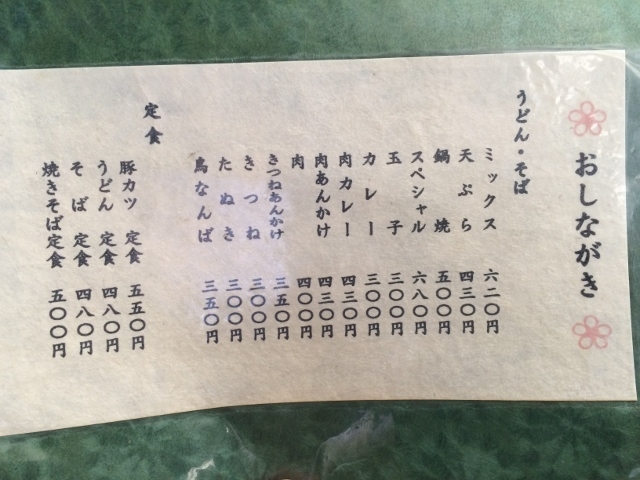 おしながき
うどん・そば
ミックス 六二〇円
天ぷら 四三〇円
鍋焼 五〇〇円
スペシャル 六八〇円
玉子 三〇〇円
カレー 三〇〇円
肉カレー 四三〇円
肉あんかけ 四三〇円
肉 四〇〇円
きつねあんかけ 三五〇円
きつね 三〇〇円
たぬき 三〇〇円
鳥なんば 三五〇円
定食
豚カツ定食 五五〇円
うどん定食 四八〇円
そば定食 四八〇円
焼きそば定食 五〇〇円